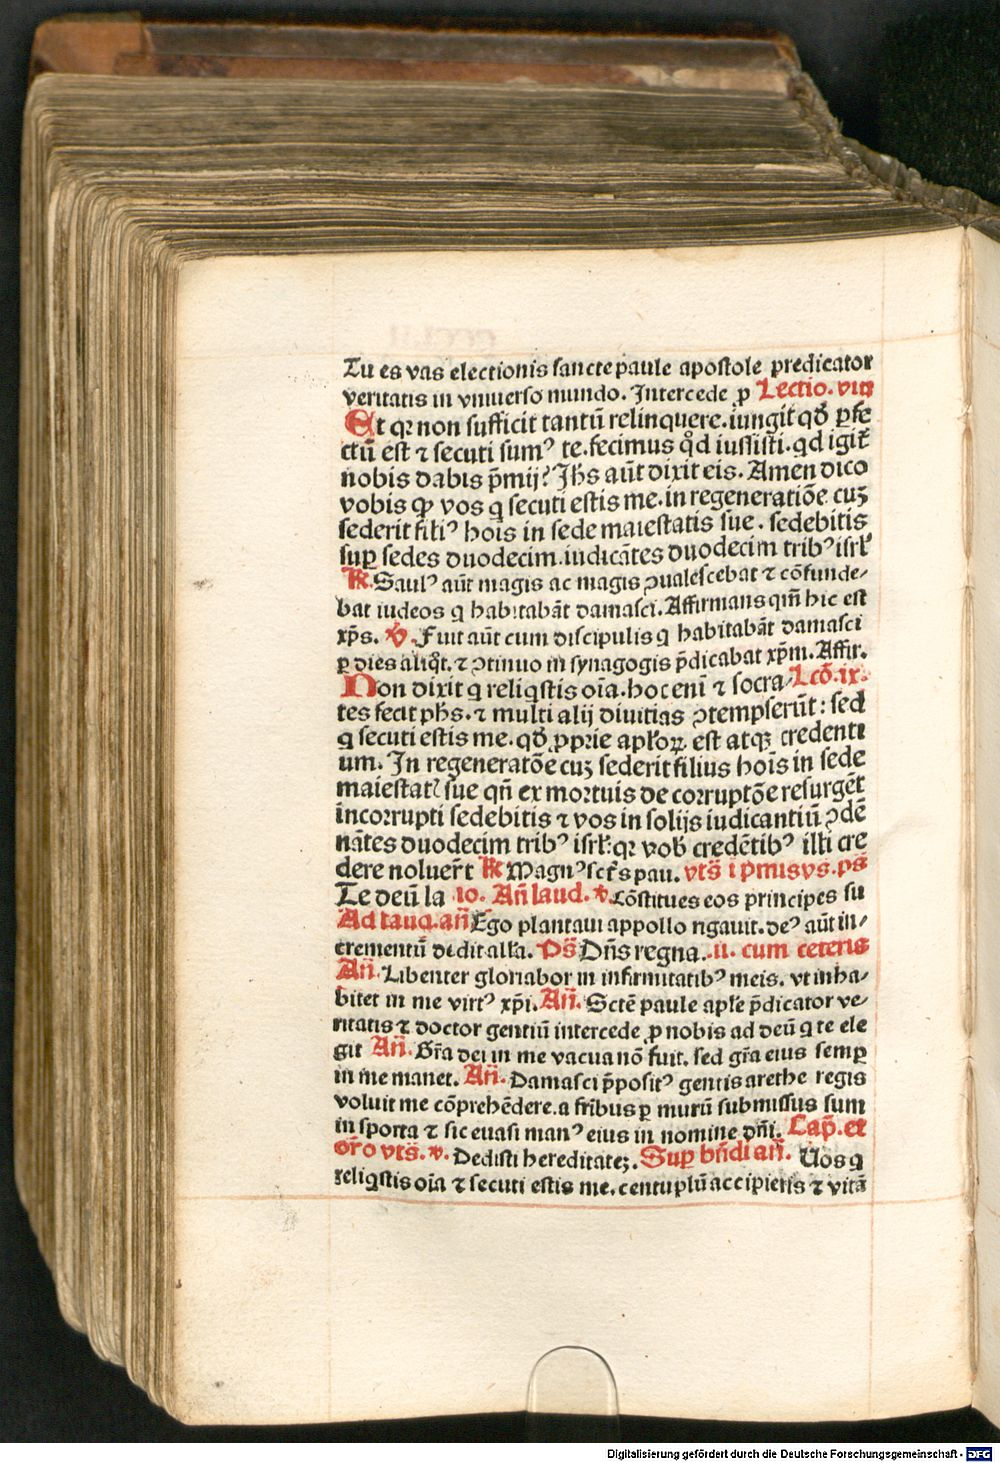 Tu es vas electionis sancte paule apostole predicator
veritatis in vniuerso mundo. Intercede ꝓ Lectio. viij
Et qꝛ non sufficit tantū relinquere. iungit qđ ꝑfe
ctū est ⁊ secuti sumꝰ te. fecimus qͦd iussisti. qd igit̃
nobis dabis p̄mij? Jhs aūt dixit eis. Amen dico
vobis ꝙ vos q secuti estis me. in regeneratiōe cuꝫ
sederit filiꝰ hoīs in sede maiestatis sue. sedebitis
suꝑ sedes duodecim. iudicātes duodecim tribꝰ isrł
℟. Saulꝰ aūt magis ac magis ꝯualescebat ⁊ cōfunde⸗
bat iudeos q habitabāt damasci. Affirmans qm̄ hic est
xp̄s. ℣. Fuit aūt cum discipulis q habitabāt damasci
ꝑ dies aliqͦt. ⁊ ꝯtinuo in synagogis p̄dicabat xp̄m. Affir.
Non dixit q reliqstis oīa. hoc enī ⁊ socra⸗ Lcō. ix.
tes fecit phs. ⁊ multi alij diuitias ꝯtempserūt: sed
q secuti estis me. qđ ꝓprie apłoꝝ est atqꝫ credenti
um. In regeneratōe cuꝫ sederit filius hoīs in sede
maiestatꝭ sue qn̄ ex mortuis de corruptōe resurgēt
īncorrupti sedebitis ⁊ vos in solijs iudicantiū ꝯdē
nātes duodecim tribꝰ isrł. qꝛ vob̄ credētibꝰ illi cre
dere noluer̄t ℟ Magnꝰ sct̄s pau. vts̄ i p̄misvs. ps̄
Te deū la io. An̄ laud. ℣. Cōstitues eos principes su
Ad lauđ. an̄ Ego plantaui appollo rigauit. deꝰ aūt in⸗
crementū dedit alła. Ps̄ Dn̄s regna. .ii. cum ceteris
An̄. Libenter gloriabor in infirmitatibꝰ meis. vt inha⸗
bitet in me virtꝰ xp̄i. An̄. Sctē paule apłe p̄dicator ve⸗
ritatis ⁊ doctor gentiū intercede ꝓ nobis ad deū q te ele
git An̄. Gr̄a dei in me vacua nō fuit. sed gr̄a eius semꝑ
in me manet. An̄. Damasci p̄positꝰ gentis arethe regis
voluit me cōprehēdere. a fr̄ibus ꝑ murū submissus sum
in sporta ⁊ sic euasi manꝰ eius in nomine dn̄i. Cap̄. et
or̄o vts̄. ℣. Dedisti hereditateꝫ. Suꝑ bn̄di an̄. Uos q
reliqstis oīa ⁊ secuti estis me. centuplū accipietis ⁊ vitā
Digitalisierung gefördert durch die Deutsche Forschungsgemeinschaft - DFG